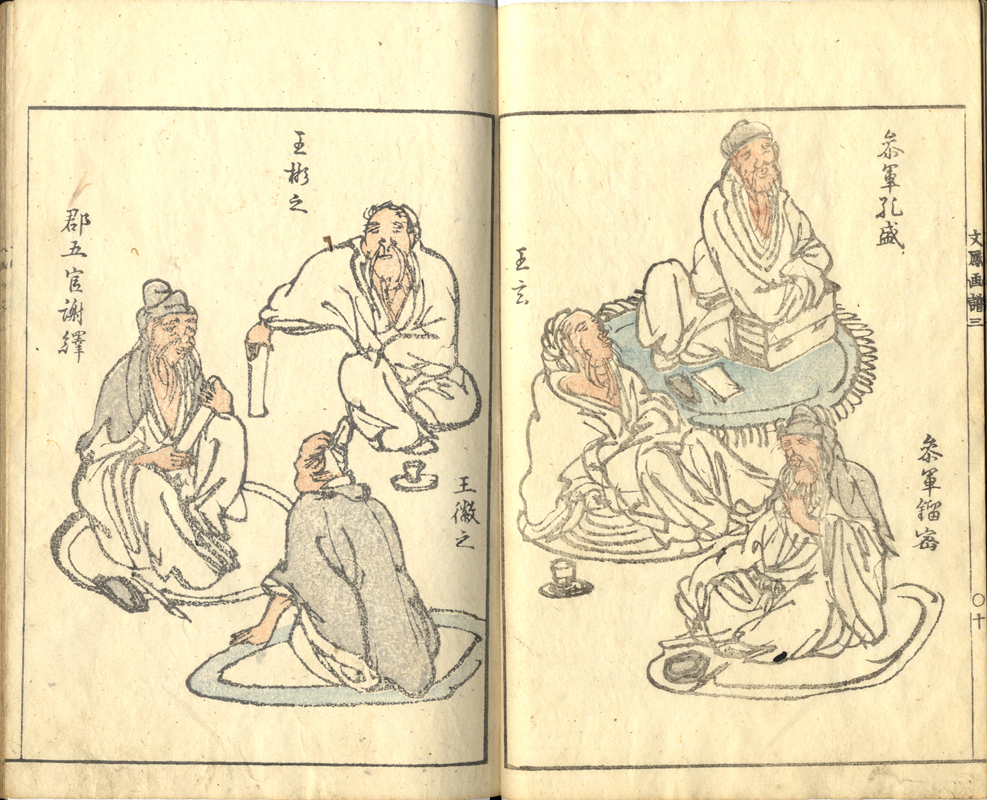 参軍孔盛
参軍鎦密
王玄
王彬之
王徽之
郡五官謝繹
文鳳画譜三
〇十